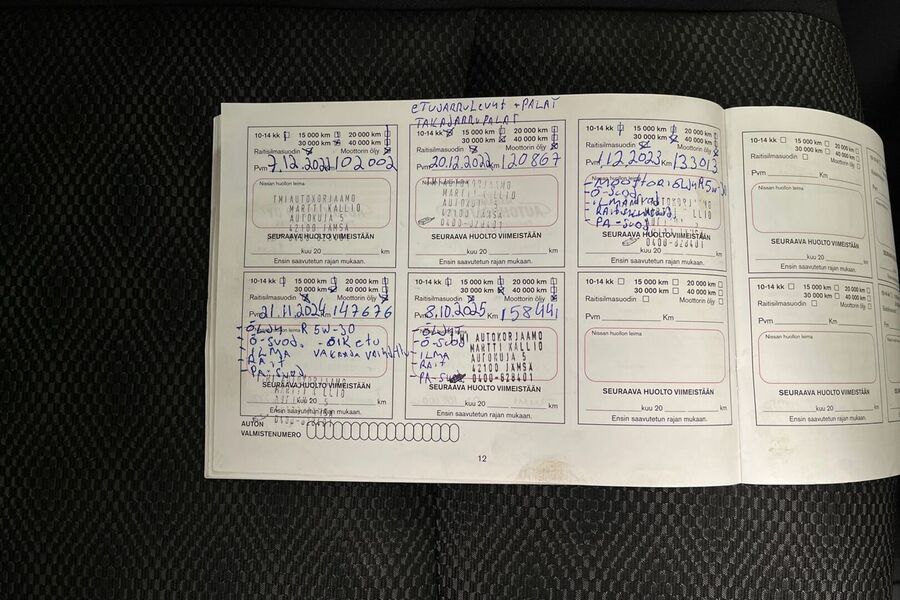 ETUJARRULEVYT + PALAT
TAKAJARRUPALAT
10-14 kk 15 000 km 20 000 km
30 000 km 40 000 km
Raitisilmasuodin Moottorin öljy
Pvm 7.12.2021 102 002
Nissan huollon leima
TMI AUTOKORJAAMO
MARTTI KALLIO
AUTOKUJA 5
42100 JAMSA
0400-628401
SEURAAVA HUOLTO VIIMEISTÄÄN
kuu 20 km
Ensin saavutetun rajan mukaan.
10-14 kk 15 000 km 20 000 km
30 000 km 40 000 km
Raitisilmasuodin Moottorin öljy
Pvm 20.12.2022 120 867
Nissan huollon leima
AUTOKORJAAMO
MARTTI KALLIO
AUTOKUJA 5
42100 JAMSA
0400-628401
SEURAAVA HUOLTO VIIMEISTÄÄN
kuu 20 km
Ensin saavutetun rajan mukaan.
10-14 kk 15 000 km 20 000 km
30 000 km 40 000 km
Raitisilmasuodin Moottorin öljy
Pvm 2023 Km 133013
Nissan huollon leima
- MOOTTORIÖLJY R 5W-30
- Ö-SUOD.
- PA-SUOD
0400-628401
SEURAAVA HUOLTO VIIMEISTÄÄN
kuu 20 km
Ensin saavutetun rajan mukaan.
10-14 kk 15 000 km 20 000 km
30 000 km 40 000 km
Raitisilmasuodin Moottorin öljy
Pvm Km
Nissan huollon leima
SEURAAVA HUOLTO VIIMEISTÄÄN
kuu 20
Ensin saavutetun rajan mukaan.
10-14 kk 15 000 km 20 000 km
30 000 km 40 000 km
Raitisilmasuodin Moottorin öljy
Pvm 21.11.2024 Km 147676
- ÖLJY R 5W-30
- Ö-SUOD. - OIK ETU
- ILMA
- RAIT
- PA-SUOD
SEURAAVA HUOLTO VIIMEISTÄÄN
kuu 20 km
Ensin saavutetun rajan mukaan.
10-14 kk 15 000 km 20 000 km
30 000 km 40 000 km
Raitisilmasuodin Moottorin öljy
Pvm 8.10.2025 Km 158441
- ÖLJYT
- Ö-SUOD
- ILMA
- RAIT
- PA-SUOD
TMI AUTOKORJAAMO
MARTTI KALLIO
AUTOKUJA 5
42100 JAMSA
0400-628401
SEURAAVA HUOLTO VIIMEISTÄÄN
kuu 20 km
Ensin saavutetun rajan mukaan.
10-14 kk 15 000 km 20 000 km
30 000 km 40 000 km
Raitisilmasuodin Moottorin öljy
Pvm Km
Nissan huollon leima
SEURAAVA HUOLTO VIIMEISTÄÄN
kuu 20 km
Ensin saavutetun rajan mukaan.
10-14 kk 15 000 km 20 000 km
30 000 km 40 000 km
Raitisilmasuodin Moottorin öljy
Pvm Km
Nissan huollon leima
SEURAAVA HUOLTO VIIMEISTÄÄN
kuu 20 km
Ensin saavutetun rajan mukaan.
AUTON
VALMISTENUMERO
12